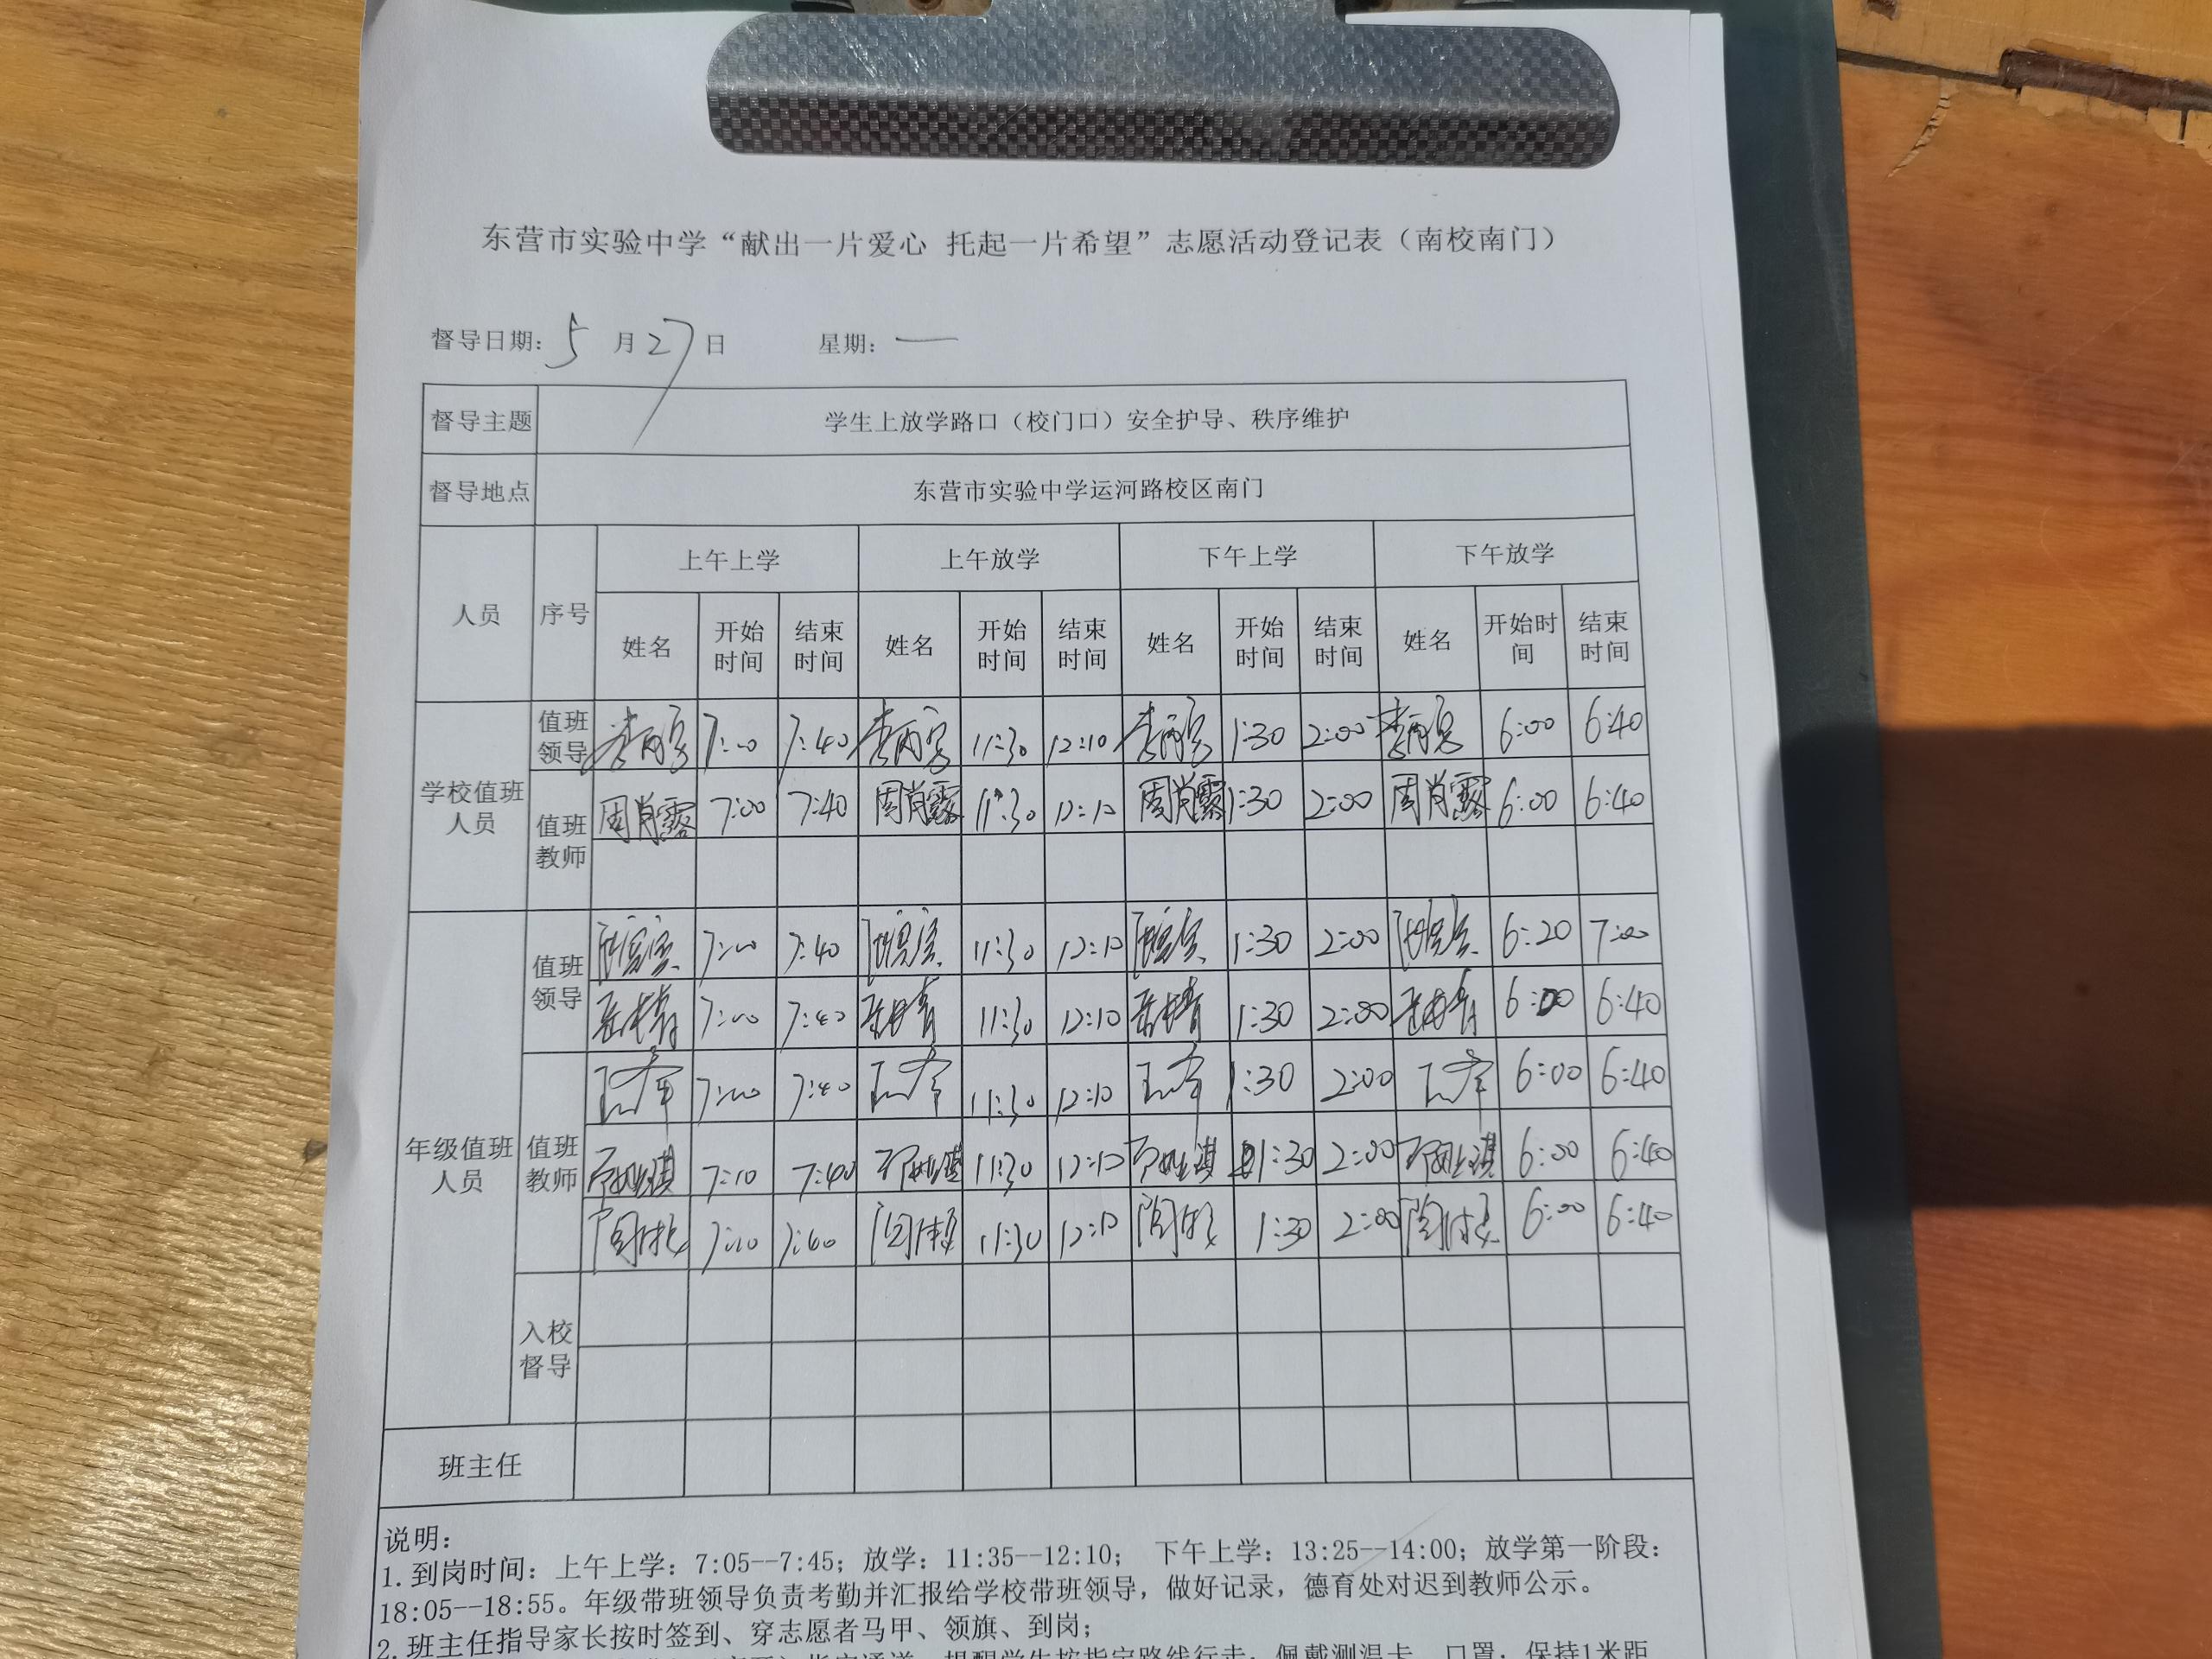 东营市实验中学“献出一片爱心 托起一片希望”志愿活动登记表（南校南门）
督导日期：5 月27日 星期：一
督导主题 学生上放学路口（校门口）安全护导、秩序维护
督导地点 东营市实验中学运河路校区南门
人员 序号 上午上学 上午放学 下午上学 下午放学
姓名 开始时间 结束时间 姓名 开始时间 结束时间 姓名 开始时间 结束时间 姓名 开始时间 结束时间
学校值班人员 值班领导 7:00 7:40 11:30 12:10 1:30 2:00 6:00 6:40
值班教师 周肖露 7:00 7:40 周肖露 11:30 12:10 周肖露 1:30 2:00 周肖露 6:00 6:40
年级值班人员 值班领导 7:00 7:40 11:30 12:10 1:30 2:00 6:20 7:00
7:00 7:40 11:30 12:10 1:30 2:00 6:00 6:40
值班教师 7:00 7:40 11:30 12:10 1:30 2:00 6:00 6:40
7:10 7:40 11:30 12:10 1:30 2:00 6:00 6:40
11:30 12:10 1:30 2:00 6:00 6:40
入校督导
班主任
说明：
1.到岗时间：上午上学：7:05--7:45；放学：11:35--12:10； 下午上学：13:25--14:00；放学第一阶段：
18:05--18:55。年级带班领导负责考勤并汇报给学校带班领导，做好记录，德育处对迟到教师公示。
2.班主任指导家长按时签到、穿志愿者马甲、领旗、到岗；
指定通道，提醒学生按指定路线行走，佩戴测温卡、口罩；保持1米距